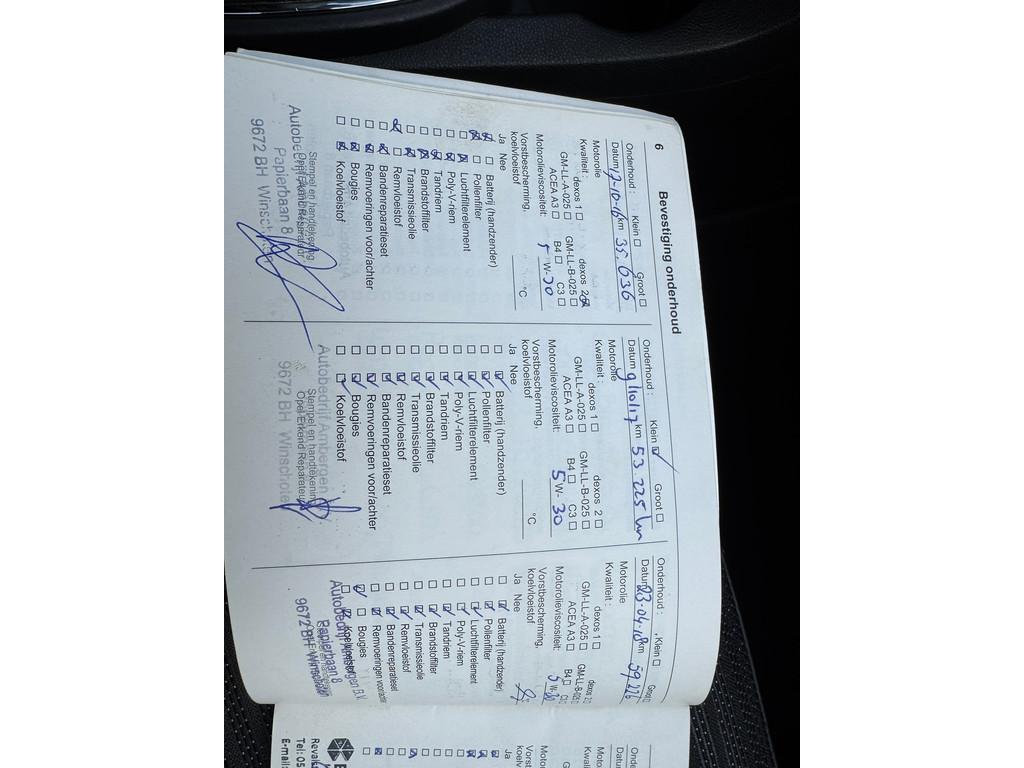 6 Bevestiging onderhoud
Onderhoud : Klein ☐ Groot ☐
Datum 17-10-16 km 35.636
Motorolie
Kwaliteit : dexos 1 ☐ dexos 2 ☒
GM-LL-A-025 ☐ GM-LL-B-025 ☐
ACEA A3 ☐ B4 ☐ C3 ☐
Motorolieviscositeit: 5 W- 30
Vorstbescherming,
koelvloeistof °C
Ja Nee
☒ ☐ Batterij (handzender)
☒ ☐ Pollenfilter
☐ ☒ Luchtfilterelement
☐ ☒ Poly-V-riem
☐ ☒ Tandriem
☐ ☒ Brandstoffilter
☐ ☒ Transmissieolie
☒ ☐ Remvloeistof
☐ ☒ Bandenreparatieset
☐ ☒ Remvoeringen voor/achter
☐ ☒ Bougies
☐ ☒ Koelvloeistof
Stempel en handtekening
Opel Erkend Reparateur
Papierbaan 8
9672 BH Winschoten
Onderhoud : Klein ☑ Groot ☐
Datum 9/10/17 km 53.225 km
Motorolie
Kwaliteit : dexos 1 ☐ dexos 2 ☐
GM-LL-A-025 ☐ GM-LL-B-025 ☐
ACEA A3 ☐ B4 ☐ C3 ☐
Motorolieviscositeit: 5 W- 30
Vorstbescherming,
koelvloeistof °C
Ja Nee
☐ ☑ Batterij (handzender)
☐ ☑ Pollenfilter
☐ ☑ Luchtfilterelement
☐ ☑ Poly-V-riem
☐ ☑ Tandriem
☐ ☑ Brandstoffilter
☐ ☑ Transmissieolie
☐ ☑ Remvloeistof
☐ ☑ Bandenreparatieset
☐ ☑ Remvoeringen voor/achter
☐ ☑ Bougies
☐ ☑ Koelvloeistof
Autobedrijf Ambergen
Stempel en handtekening
Opel Erkend Reparateur
9672 BH Winschoten
Onderhoud : Klein ☐ Groot ☐
Datum 23-04-18 km 59,226
Motorolie
Kwaliteit : dexos 1 ☐ dexos 2 ☐
GM-LL-A-025 ☐ GM-LL-B-025 ☐
ACEA A3 ☐ B4 ☐
Motorolieviscositeit: 5 W-
Vorstbescherming,
koelvloeistof
Ja Nee
☐ ☑ Batterij (handzender)
☐ ☑ Pollenfilter
☐ ☑ Luchtfilterelement
☐ ☑ Poly-V-riem
☐ ☑ Tandriem
☐ ☑ Brandstoffilter
☐ ☑ Transmissieolie
☐ ☑ Remvloeistof
☐ ☑ Bandenreparatieset
☐ ☑ Remvoeringen voor/achter
☑ ☐ Bougies
☐ ☑ Koelvloeistof
Autobedrijf Ambergen B.V.
Papierbaan 8
9672 BH Winschoten
Onderhoud
Datum
Motorolie
Kwaliteit
Vorst
koelv
Ja
Tel: 05
E-mail: